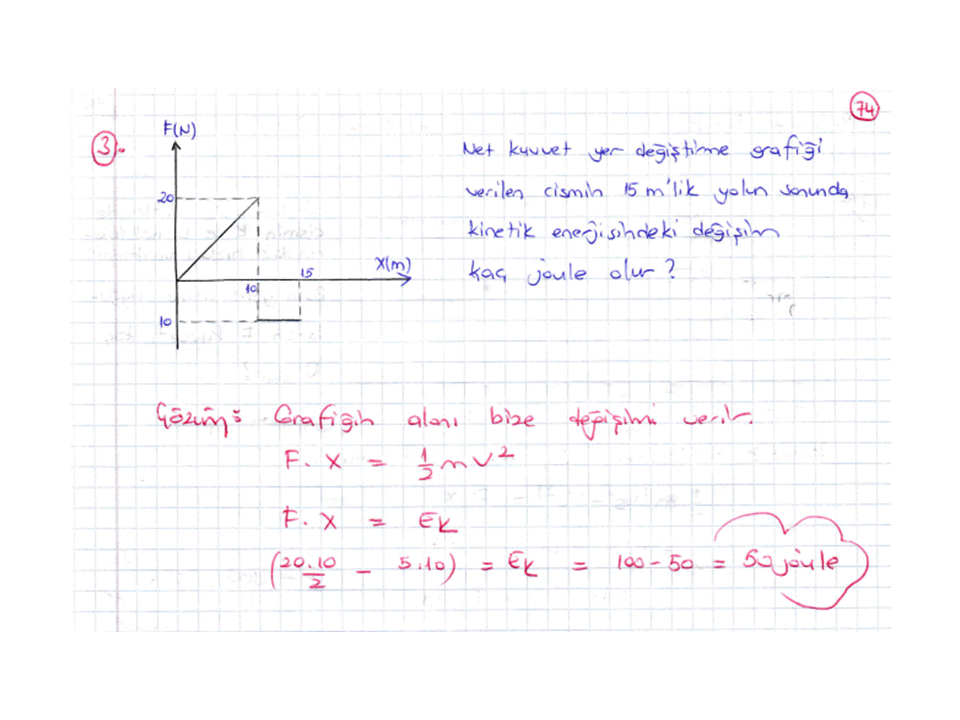 74
3.
F(N)
20
10
15
X(m)
10
Net kuvvet yer değiştirme grafiği
verilen cismin 15 m'lik yolun sonunda
kinetik enerjisindeki değişim
kaç joule olur?
Çözüm: Grafiğin alanı bize değişimi verir.
F. X = 1/2 m V²
F. X = EK
(20.10/2 - 5.10) = EK = 100-50 = 50 joule